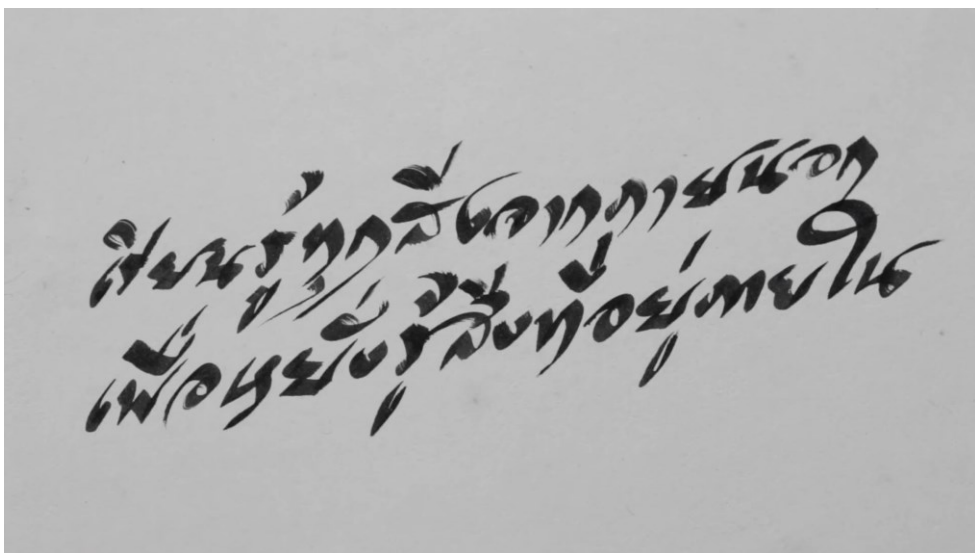 เรียนรู้ทุกสิ่งจากภายนอก
เพื่อหยั่งรู้สิ่งที่อยู่ภายใน